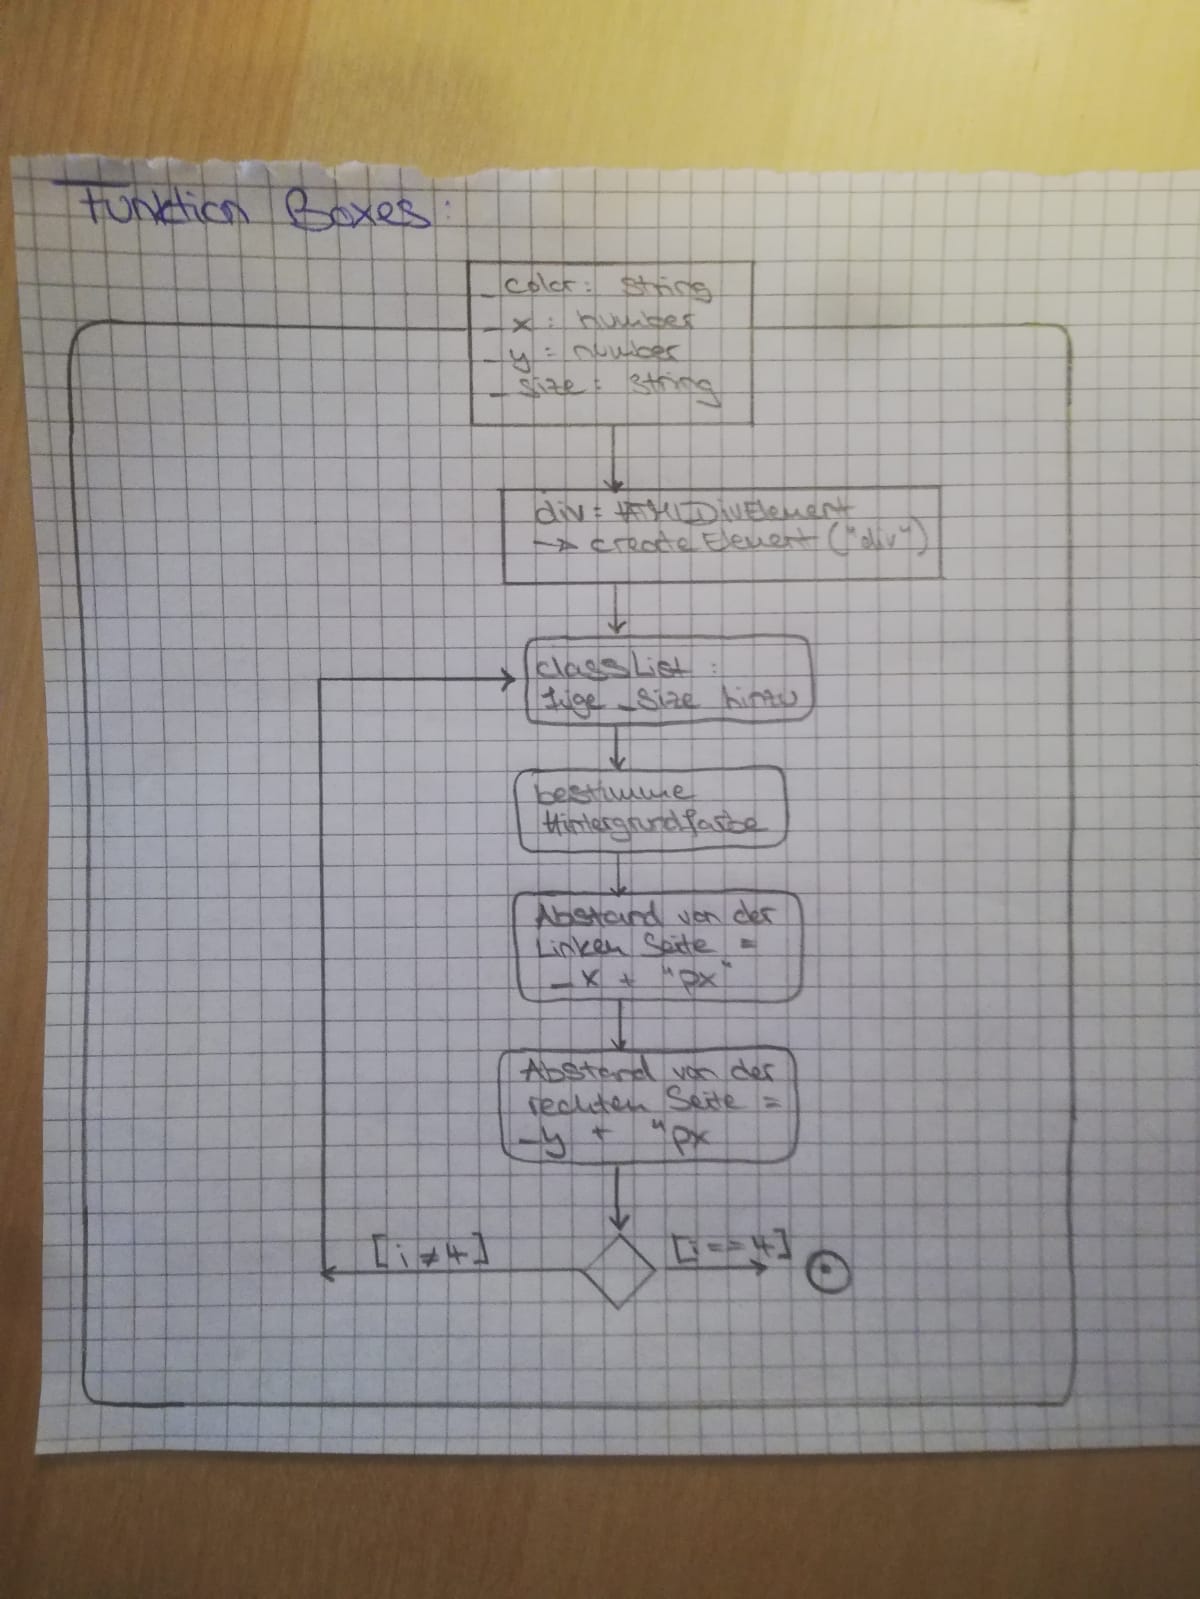 Funktion Boxes:
_color: string
_x: number
_y: number
_size: string
div: HTMLDivElement
-> createElement("div")
classList:
füge _size hinzu
bestimme
Hintergrundfarbe
Abstand von der
Linken Seite =
_x + "px"
Abstand von der
rechten Seite =
_y + "px
[i ≠ 4]
[i == 4]